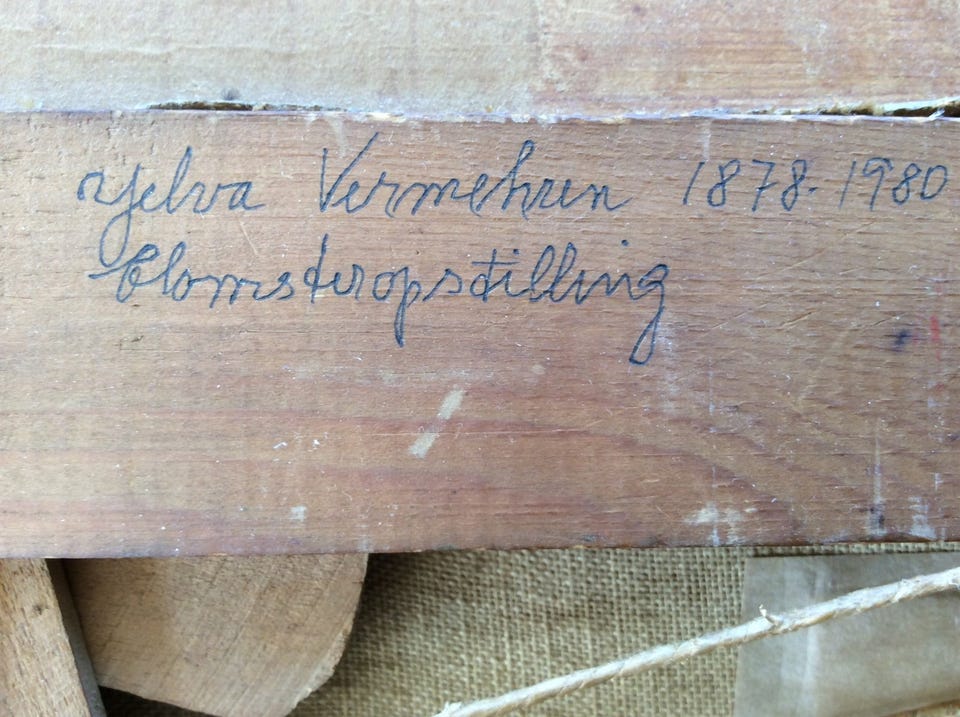 Yelva Vermehren 1878-1980
Blomsteropstilling